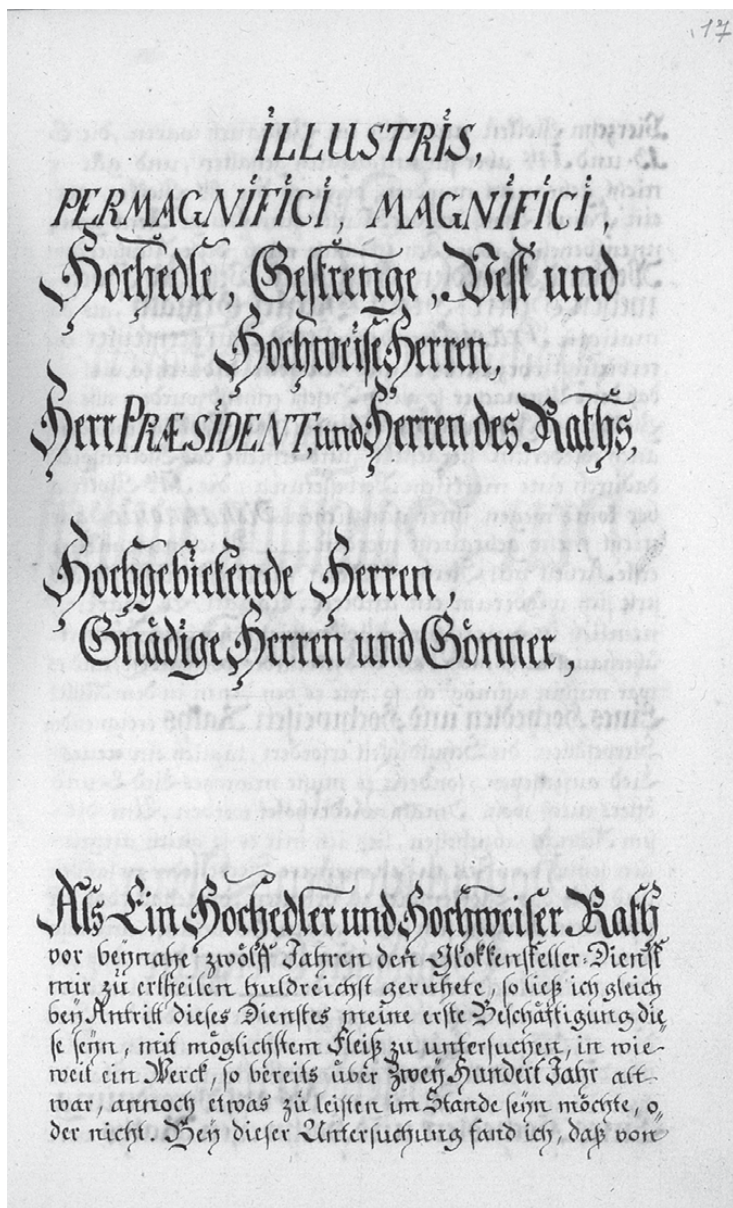 17
ILLUSTRIS,
PERMAGNIFICI, MAGNIFICI,
Hochedle, Gestrenge, Vest und
Hochweise Herren,
Herr PRÆSIDENT, und Herren des Raths,
Hochgebietende Herren,
Gnädige Herren und Gönner,
Als Ein Hochedler und Hochweiser Rath
vor beynahe zwölff Jahren den Glokkensteller-Dienst
mir zu ertheilen huldreichst geruhete, so ließ ich gleich
bey Antritt dieses Dienstes meine erste Beschäftigung die„
se seyn, mit möglichstem Fleiß zu untersuchen, in wie-
weit ein Werck, so bereits über Zwey Hundert Jahr alt
war, annoch etwas zu leisten im Stande seyn möchte, o„
der nicht. Bey dieser Untersuchung fand ich, daß von